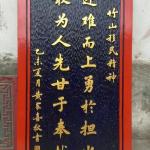 竹山移民精神
迎难而上勇於担当
敢为人先甘于奉献
乙未夏月黄家喜敬书